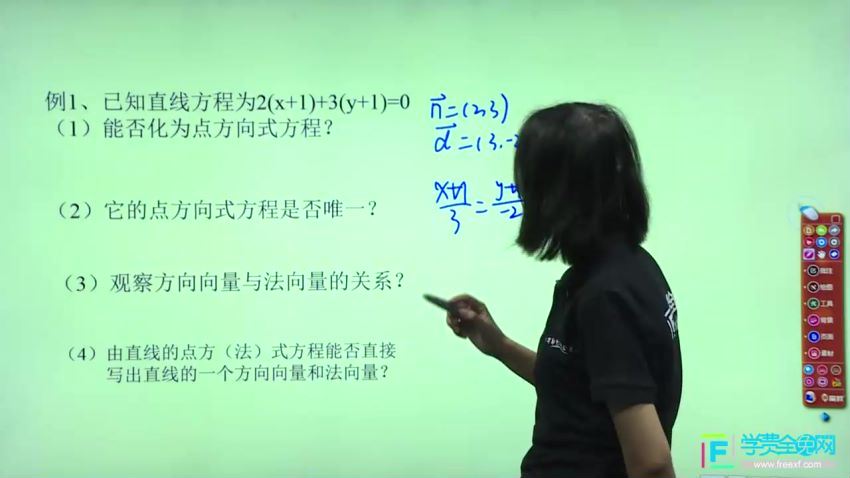 例1、已知直线方程为2(x+1)+3(y+1)=0
（1）能否化为点方向式方程？
（2）它的点方向式方程是否唯一？
（3）观察方向向量与法向量的关系？
（4）由直线的点方（法）式方程能否直接
写出直线的一个方向向量和法向量？
n⃗=(2,3)
d⃗=(3,-2
x+1/3=y+1/-2
批注
绘图
工具
背景
页面
素材
学费全免网
www.freexf.com